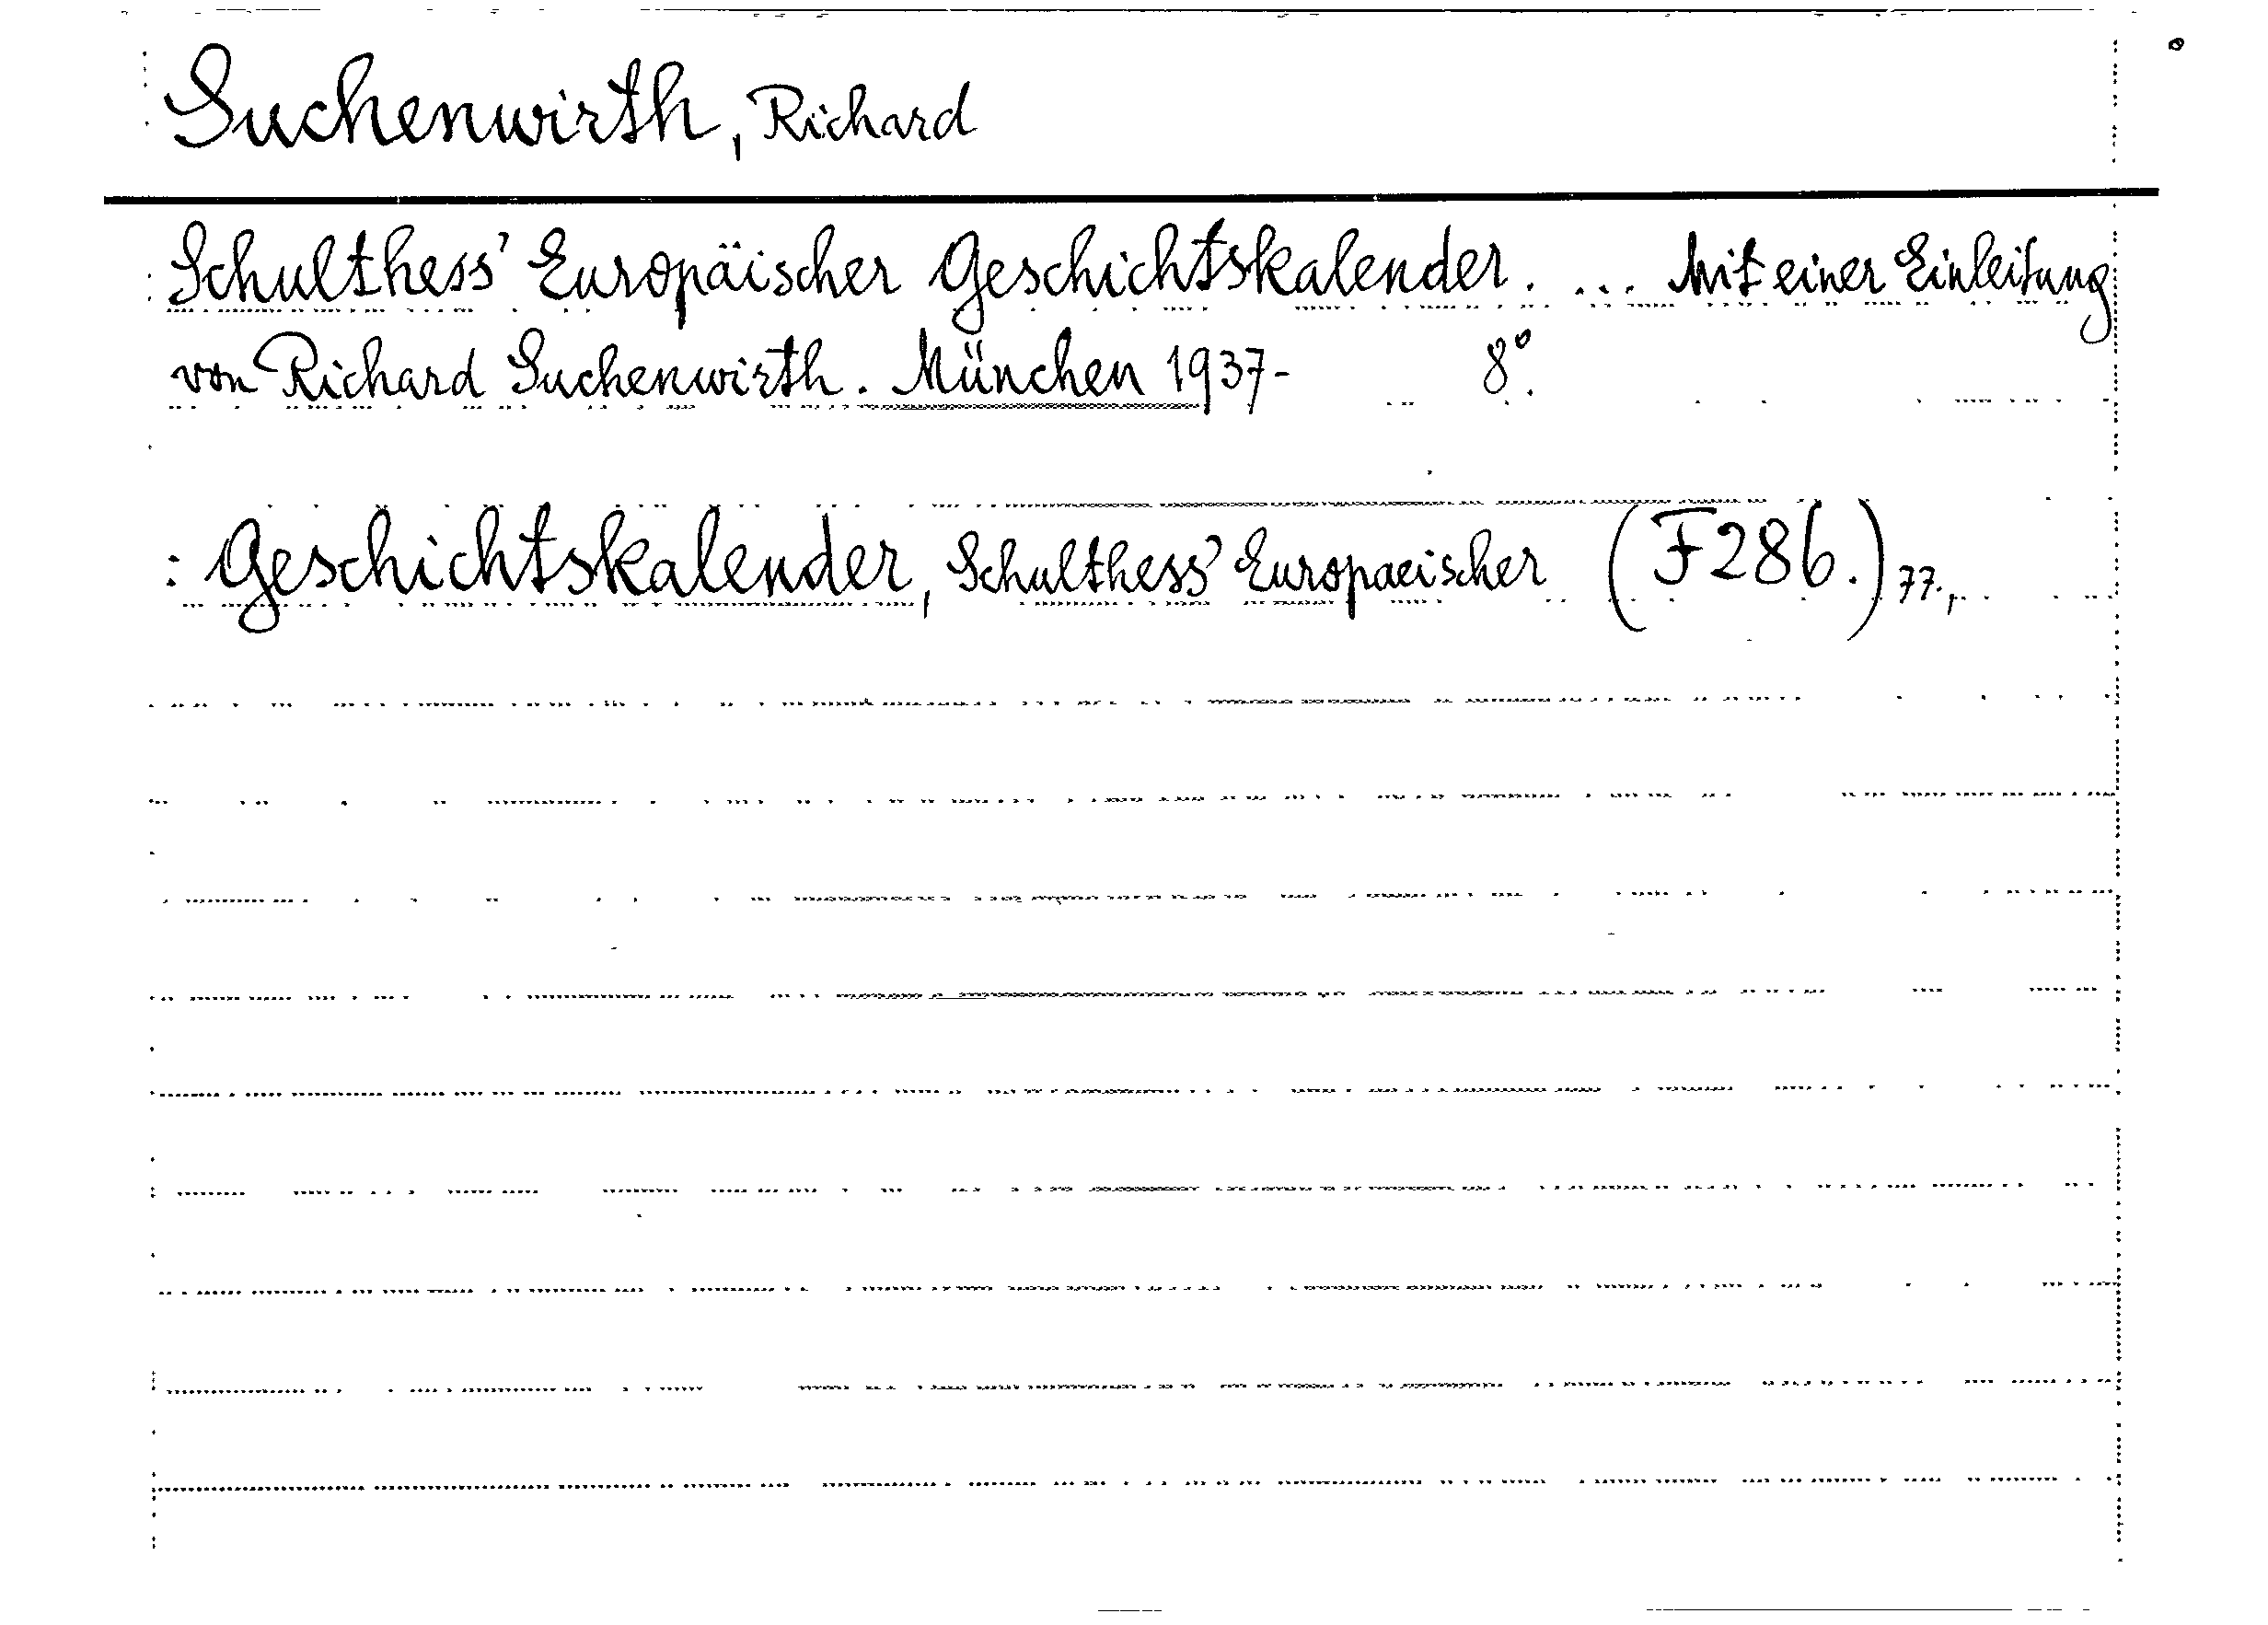 Suchenwirth, Richard
Schulthess' Europäischer Geschichtskalender. ... Mit einer Einleitung
von Richard Suchenwirth. München 1937- 8°.
: Geschichtskalender, Schulthess' Europaeischer (F286.) 77.,